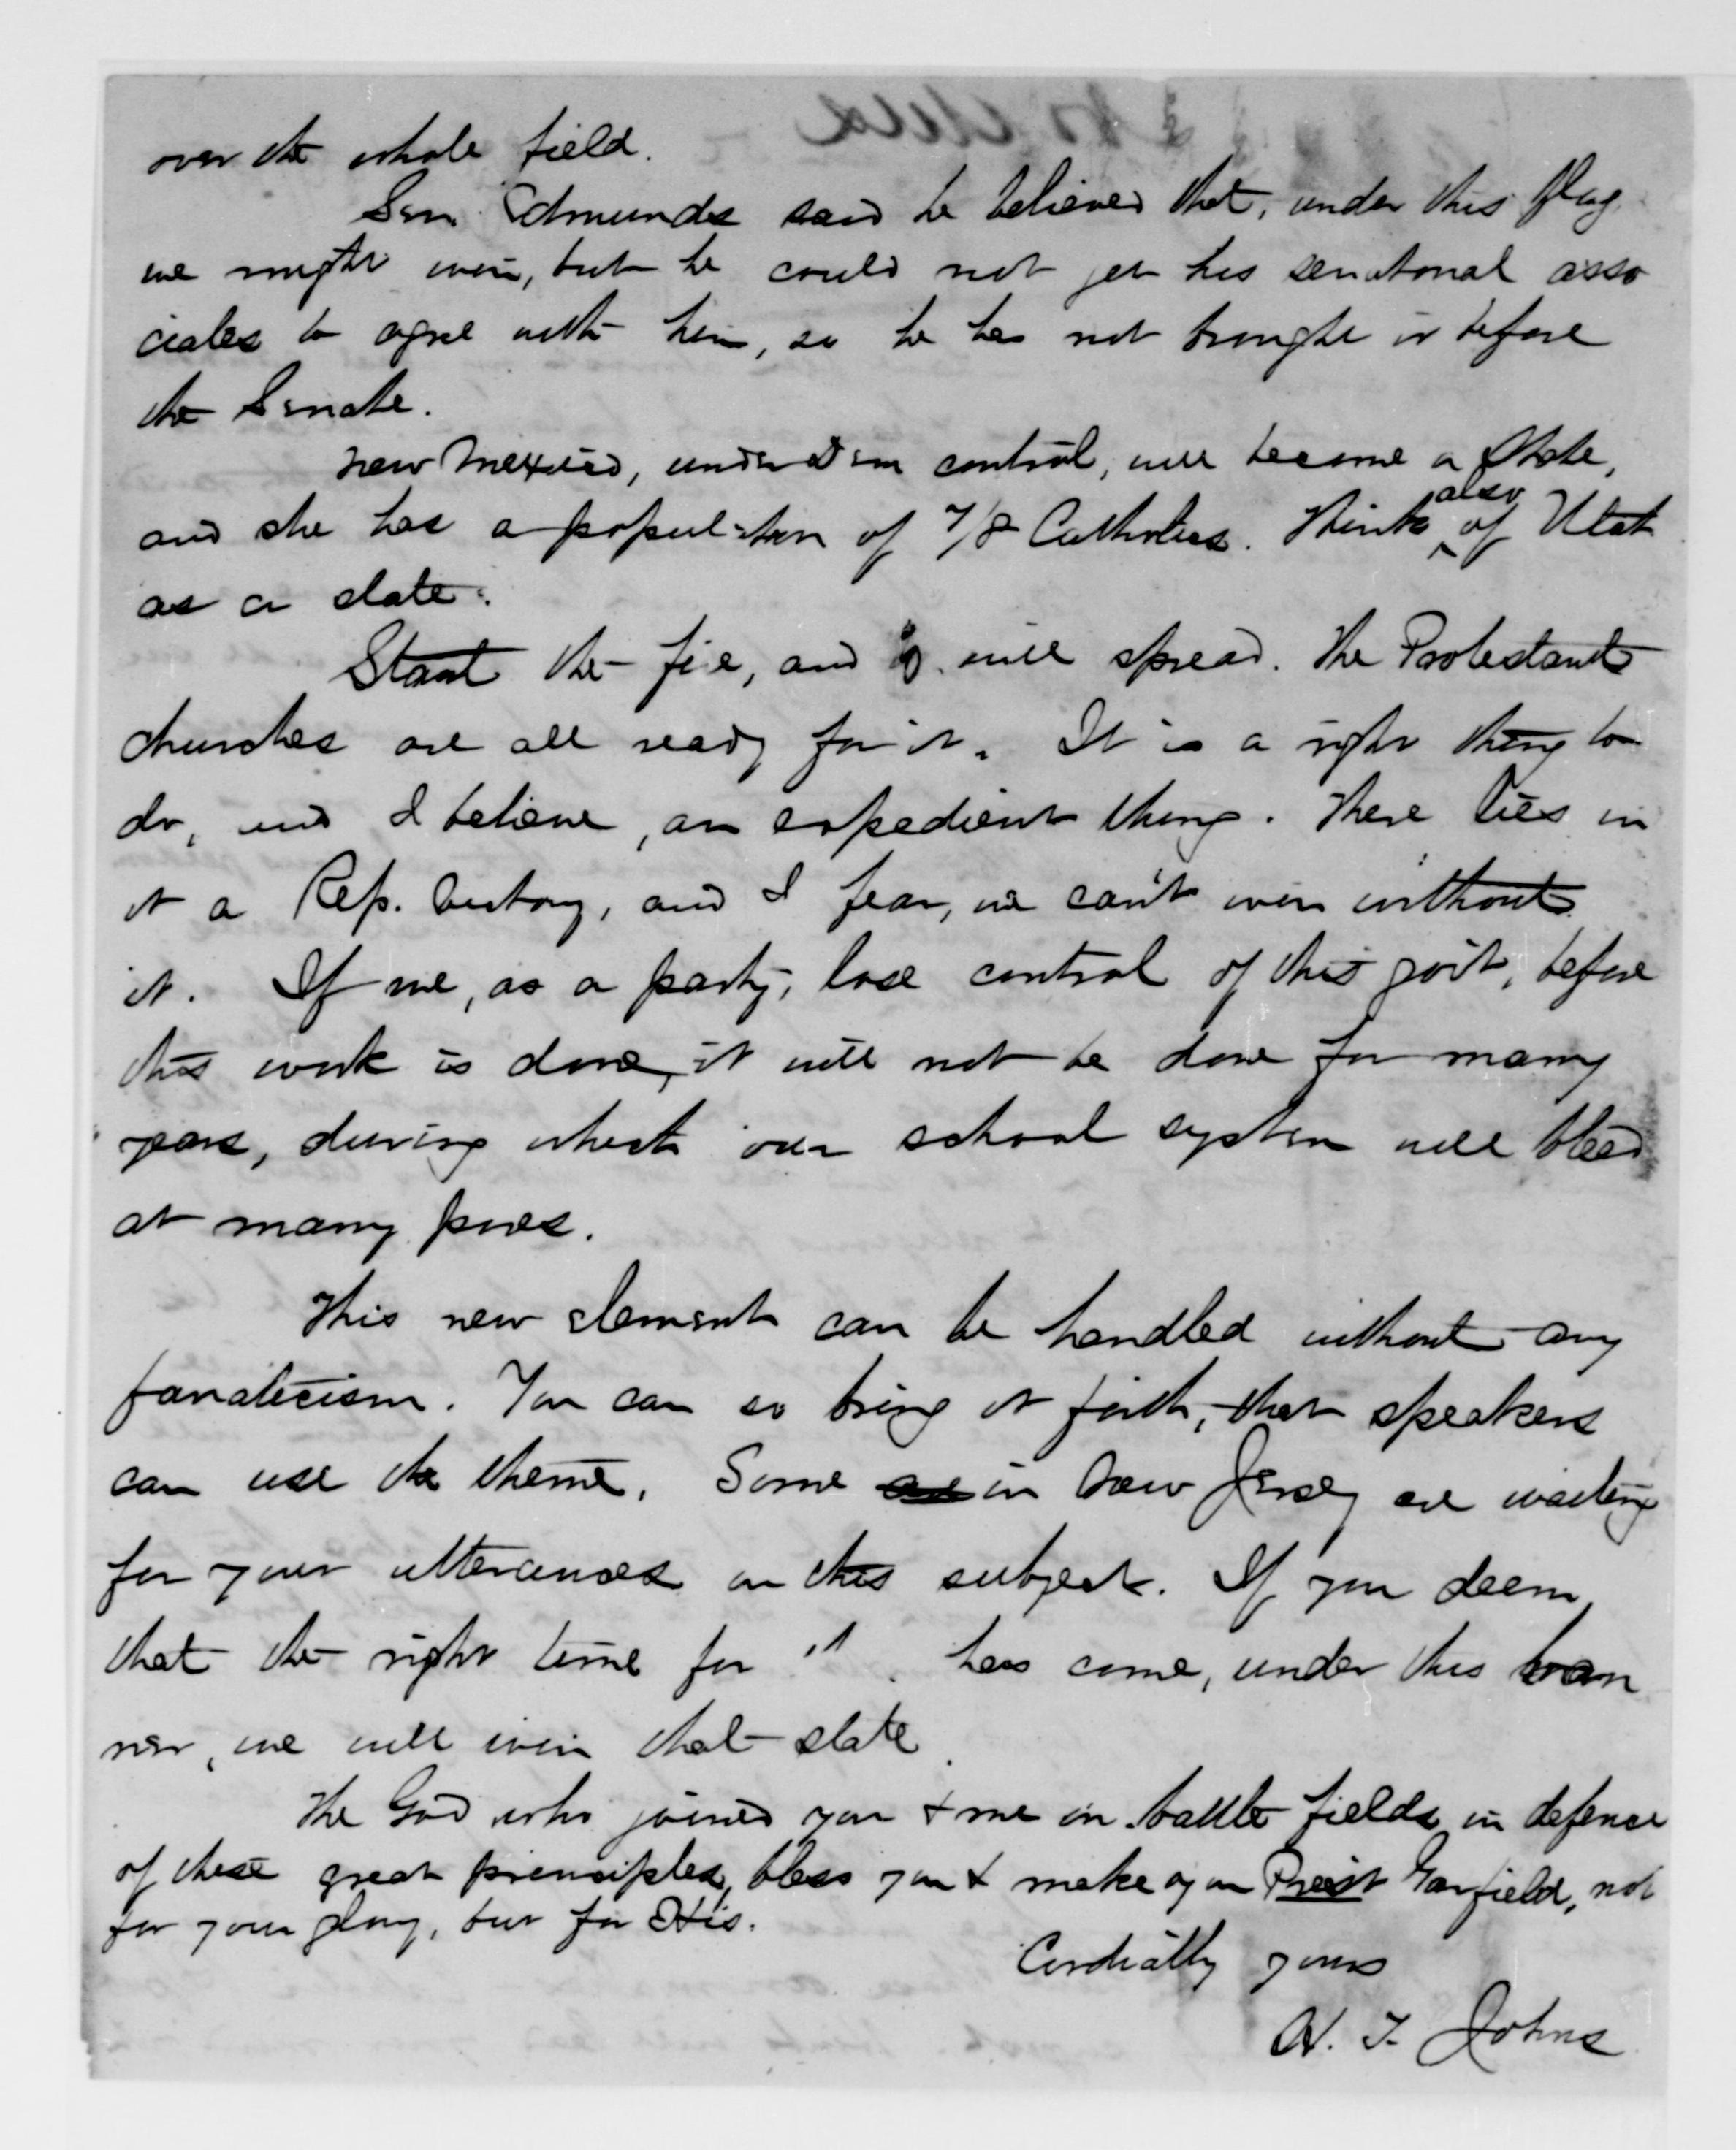 over the whole field.
Sen. Edmunds said he believed that, under this flag
we might win, but he could not get his senatorial asso
ciates to agree with him, so he has not brought it before
the Senate.
New Mexico, under Dem control, will become a State,
and she has a population of 7/8 Catholics. Think also of Utah
as a state.
Start the fire, and it will spread. The Protestant
churches are all ready for it. It is a right thing to
do, and I believe, an expedient thing. There lies in
it a Rep. victory, and I fear, we can't win without
it. If we, as a party, lose control of this gov't, before
this work is done, it will not be done for many
years, during which our school system will bleed
at many pores.
This new element can be handled without any
fanaticism. You can so bring it forth, that speakers
can use the theme. Some in New Jersey are waiting
for your utterances on this subject. If you deem
that the right time for it has come, under this ban
ner, we will win that state.
The God who joined you & me on battle fields in defence
of these great principles, bless you & make you Prest Garfield, not
for your glory, but for His.
Cordially yours
H. T. Johns